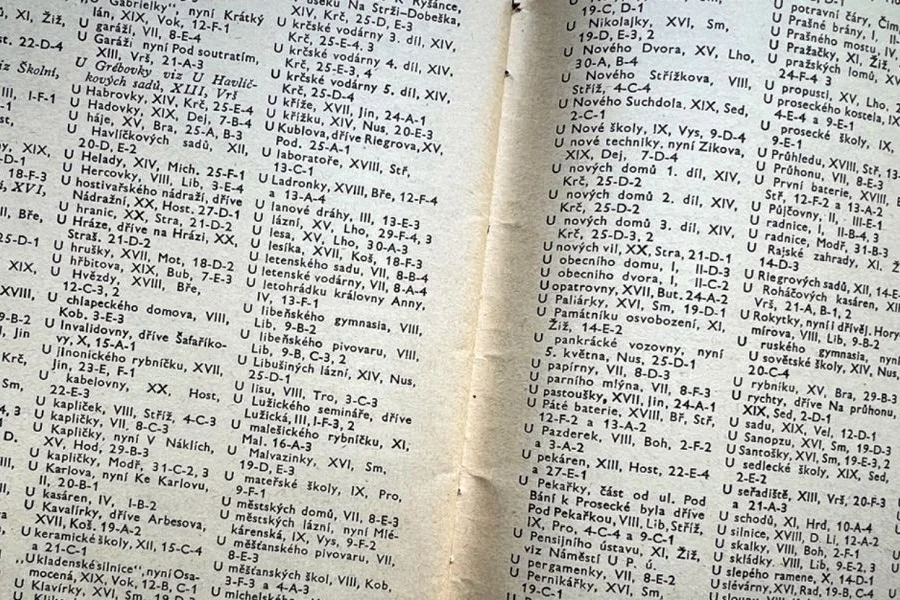 XI, Žiž,
st. 22-D-4
viz Školní,
III, I-F-1
ny, XIX,
-D-1
18-F-3
XVI,
II, Bře,
25-D-1
XIX,
XVIII,
9-B-2
Jin
Krč,
Sm,
4, 3
D.
U „Gabrielky“, nyní Krátký
lán, XIX, Vok, 12-F-1
U garáží, VII, 8-E-4
U Garáží nyní Pod soutratím,
XIII, Vrš, 21-A-3
U Grébovky viz U Havlíč-
kových sadů, XIII, Vrš
U Habrovky, XIV, Krč, 25-E-4
U Hadovky, XIX, Dej, 7-B-4
U háje, XV, Bra, 25-A, B-3
U Havlíčkových sadů, XII,
20-D, E-2
U Helady, XIV, Mich. 25-F-1
U Hercovky, VIII, Lib, 3-E-4
U hostivařského nádraží, dříve
Nádražní, XX, Host, 27-D-1
U hranic, XX, Stra, 21-D-2
U Hráze, dříve na Hrázi, XX,
Straš, 21-D-2
U hrušky, XVII, Mot, 18-D-2
U hřbitova, XIX, Bub, 7-E-3
U Hvězdy, XVIII, Bře,
12-C-3, 2
U chlapeckého domova, VIII,
Kob. 3-E-3
U Invalidovny, dříve Šafaříko-
vy, X, 15-A-1
U Jinonického rybníčku, XVII,
Jin, 23-E, F-1
U kabelovny, XX, Host,
22-E-3
U kapliček, VIII, Stříž, 4-C-3
U kapličky, VII, 8-C-3
U Kapličky, nyní V Náklích,
XV, Hod, 29-B-3
U kapličky, Modř, 31-C-2, 3
U Karlova, nyní Ke Karlovu,
II, 20-B-1
U kasáren, IV, I-B-2
U Kavalírky, dříve Arbesova,
XVII, Koš. 19-A-2
U keramické školy, XII, 15-C-4
a 21-C-1
U „Ukladenské silnice“, nyní Osa-
mocená, XIX, Vok, 12-B, C-1
U Klavírky, XVI, Sm, 19-D-3
U úseku Na Strži–Dobeška,
XIV, Krč, 25-D, E-3
U krčské vodárny 3. díl, XIV,
Krč, 25-E-4, 3
U krčské vodárny 4. díl, XIV,
Krč, 25-E-3, 4
U krčské vodárny 5. díl, XIV,
Krč, 25-D-4
U kříže, XVII, Jin, 24-A-1
U křížku, XIV, Nus, 20-E-3
U Kublova, dříve Riegrova, XV,
Pod. 25-A-1
U laboratoře, XVIII, Stř,
13-C-1
U Ladronky, XVIII, Bře, 12-F-4
a 13-A-4
U lanové dráhy, III, 13-E-3
U lázní, XV, Lho, 29-F-4, 3
U lesa, XV, Lho, 30-A-3
U lesíka, XVII, Koš, 18-F-3
U letenského sadu, VII, 8-B-4
U letenské vodárny, VII, 8-A-4
U letohrádku královny Anny,
IV, 13-F-1
U libeňského gymnasia, VIII,
Lib, 9-B-2
U libeňského pivovaru, VIII,
Lib, 9-B, C-3, 2
U Libušiných lázní, XIV, Nus,
25-D-1
U lisu, VIII, Tro, 3-C-3
U Lužického semináře, dříve
Lužická, III, I-F-3, 2
U malešického rybníčku, XI,
Mal. 16-A-3
U Malvazinky, XVI, Sm,
19-D, E-3
U mateřské školy, IX, Pro,
9-F-1
U městských domů, VII, 8-E-3
U městských lázní, nyní Mlé-
kárenská, IX, Vys, 9-F-2
U měšťanského pivovaru, VII,
8-E-3
U měšťanských škol, VIII, Kob,
3-F-3 a 4-A-3
U michelského
19-C, D-1
U Nikolajky, XVI, Sm,
19-D, E-3, 2
U Nového Dvora, XV, Lho,
30-A, B-4
U Nového Střížkova, VIII,
Stříž, 4-C-4
U Nového Suchdola, XIX, Sed,
2-C-1
U Nové školy, IX, Vys, 9-D-4
U nové techniky, nyní Zikova,
XIX, Dej, 7-D-4
U nových domů 1. díl, XIV,
Krč, 25-D-2
U nových domů 2. díl, XIV,
Krč, 25-D-2
U nových domů 3. díl, XIV,
Krč, 25-D-3, 2
U nových vil, XX, Stra, 21-D-1
U obecního domu, I, II-D-3
U obecního dvora, I, II-C-2
U opatrovny, XVII, But. 24-A-2
U Paliárky, XVI, Sm, 19-D-1
U Památníku osvobození, XI,
Žiž, 14-E-2
U pankrácké vozovny, nyní
5. května, Nus, 25-D-1
U papírny, VII, 8-D-3
U parního mlýna, VII, 8-F-3
U pastoušky, XVII, Jin, 24-A-1
U Páté baterie, XVIII, Bř, Stř,
12-F-2 a 13-A-2
U Pazderek, VIII, Boh, 2-F-2
a 3-A-2
U pekáren, XIII, Host, 22-E-4
a 27-E-1
U Pekařky, část od ul. Pod
Bání k Prosecké byla dříve
Pod Pekařkou, VIII, Lib, Stříž,
IX, Pro, 4-C-4 a 9-C-1
U Pensijního ústavu, XI, Žiž,
viz Náměstí U P. ú.
U pergamenky, VII, 8-E-2
U Pernikářky, XVI, Sm,
19-C-1
U potravní čáry, Čim,
U Prašné brány, I, II-
U Prašného mostu, IV,
U Pražačky, XI, Žiž,
U pražských lomů, XV
24-F-4 3
U propusti, XV, Lho, 2
U proseckého kostela, IX
4-E-4 a 9-E-1
U prosecké školy, IX,
9-E-1
U Průhledu, XVIII, Stř, 13-
U Průhonu, VII, 8-E-3
U První baterie, XVIII, B
Stř, 12-F-2 a 13-A-2
U Půjčovny, II, III-E-1
U radnice, I, II-B-4, 3
U radnice, Modř, 31-B-3
U Rajské zahrady, XI, Ž
14-D-3
U Riegrových sadů, XII, 14-E-
U Roháčových kasáren, XII
Vrš, 21-A, B-1, 2
U Rokytky, nyní i dřívěj. Hory
mírova, VIII, Lib, 9-B-2
U ruského gymnasia, nyní
U sovětské školy, XIV, Nus,
20-C-4
U rybníku, XV, Bra, 29-B-3
U rychty, dříve Na průhonu,
XIX, Sed, 2-D-1
U sadu, XIX, Vel, 12-D-1
U Sanopzu, XVI, Sm, 19-D-3
U Santošky, XVI, Sm, 19-E-3, 2
U sedlecké školy, XIX, Sed,
2-E-2
U seřadiště, XIII, Vrš, 20-F-3
a 21-A-3
U schodů, XI, Hrd, 10-A-4
U silnice, XVIII, D. Li, 12-A-2
U skalky, VIII, Boh, 2-F-1
U skládky, VIII, Lib, 9-E-2, 3
U slepého ramene, X, 14-D-1
U slévárny, XVI, Rad, 19-B, C-4